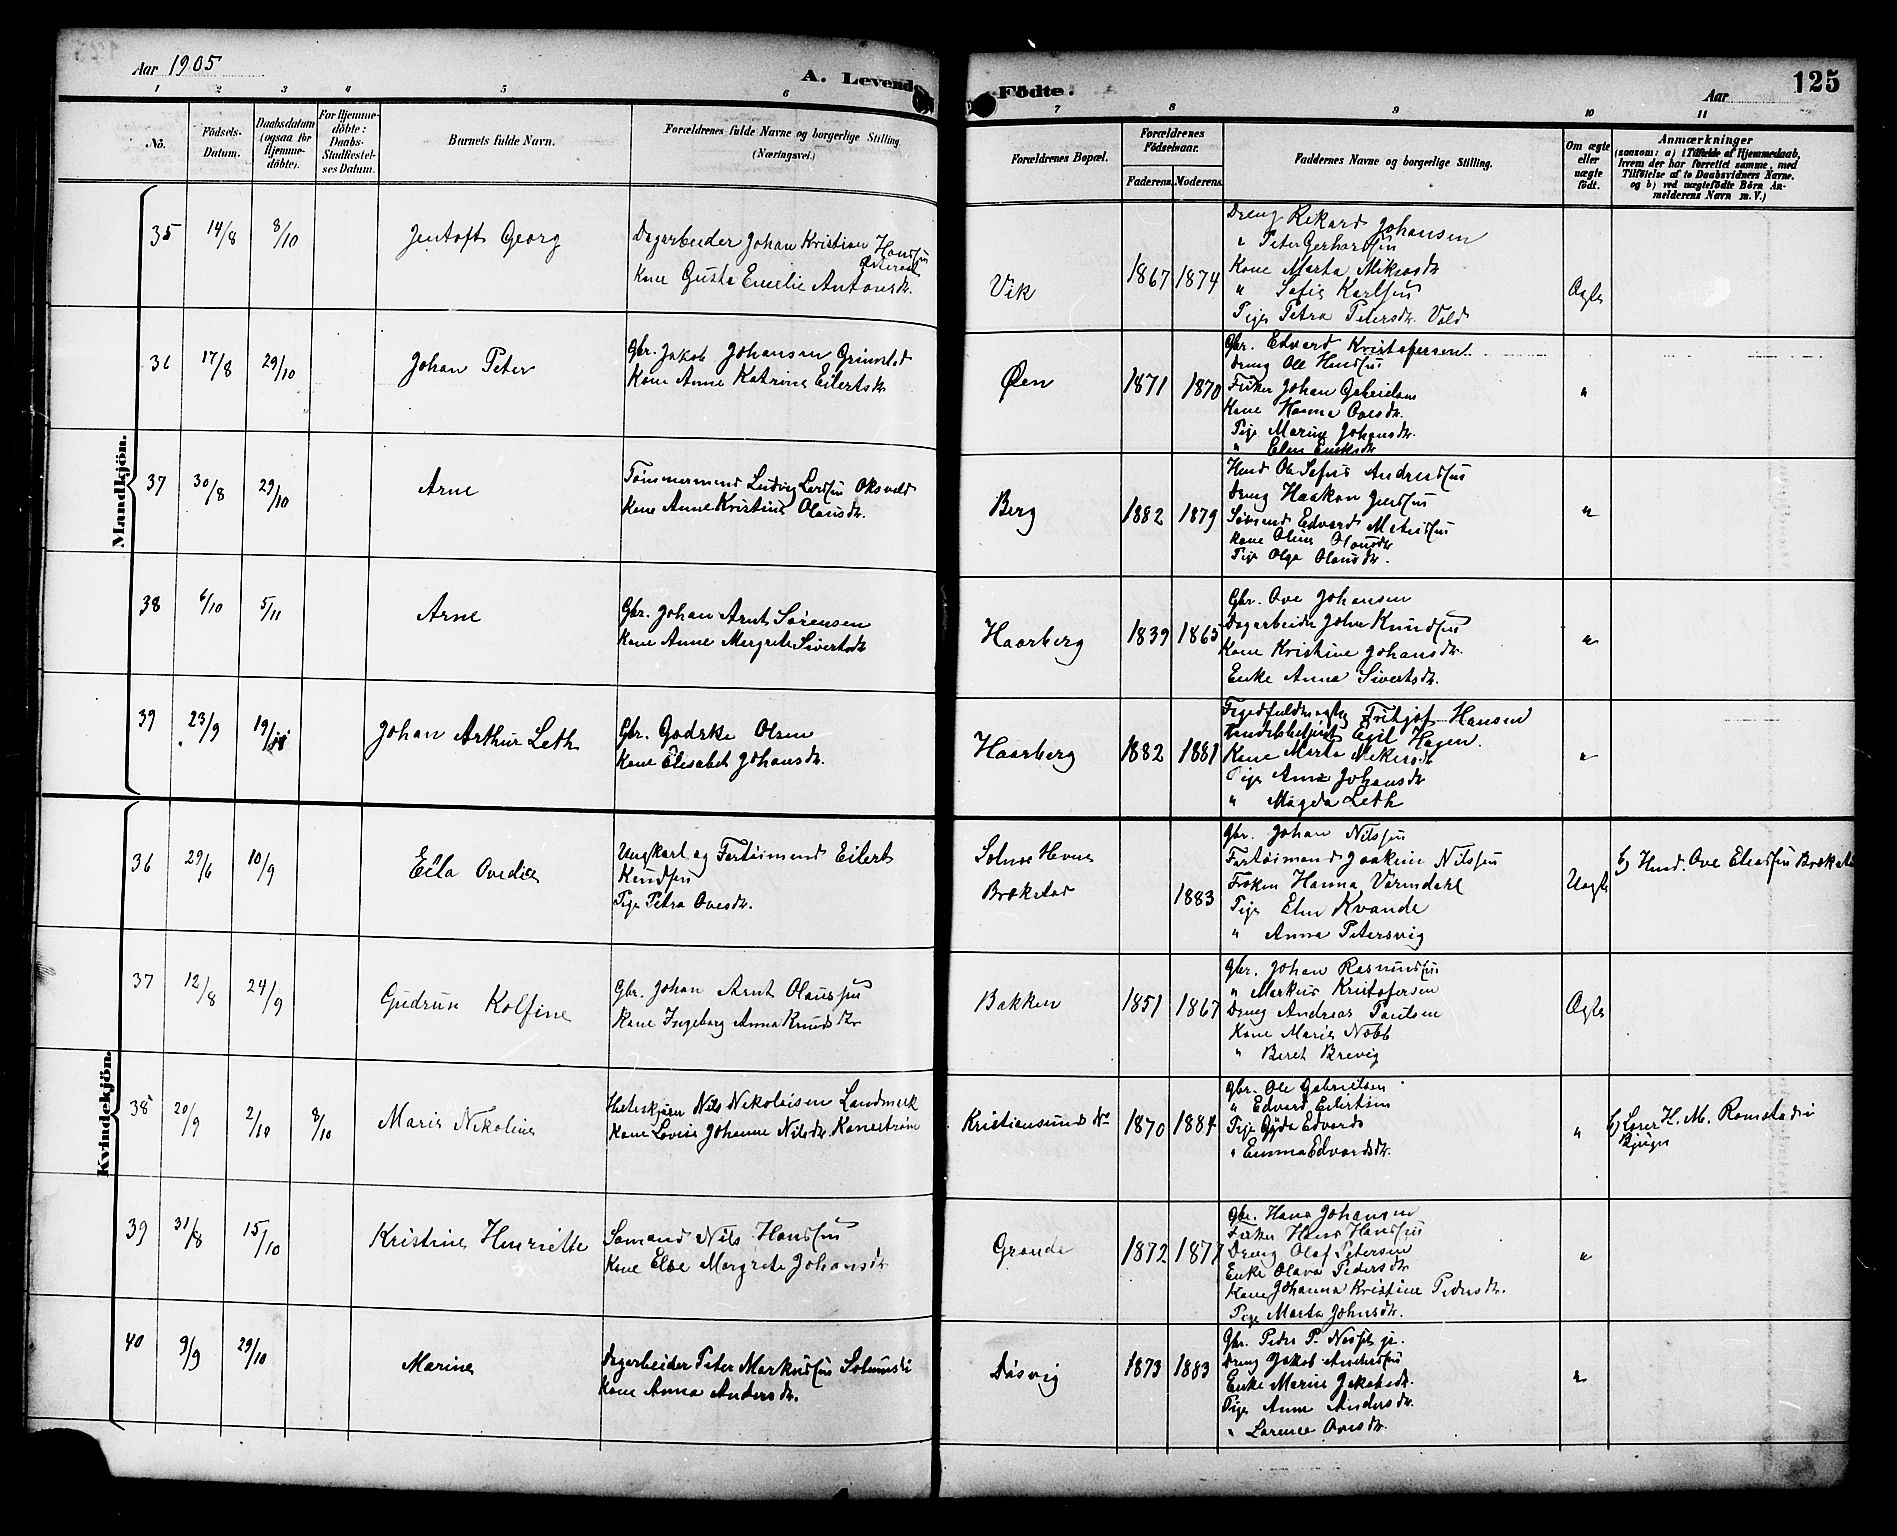 Aar 1905
A. Levende
Födte.
Aar
125
1 2 3 4 5 6 7 8 9 10 11
No.
Födsels-
Datum.
Daabsdatum
(ogsaa for
Hjemme-
döbte).
For Hjemme-
döbte:
Daabs-
Stadfæstel-
ses Datum.
Barnets fulde Navn.
Forældrenes fulde Navne og borgerlige Stilling
(Næringsvei.)
Forældrenes Bopæl.
Forældrenes
Födselsaar.
Faderens. Moderens.
Faddernes Navne og borgerlige Stilling.
Om ægte
eller
uægte
födt.
Anmærkninger
(saasom: a) i Tilfælde af Hjemmedaab,
hvem der har forrettet samme, med
Tilföielse af to Daabsvidners Navne.
og b) ved uægtefödte Börn An-
melderens Navn m. V.)
Mandkjön.
35 14/8 8/10 Jentoft Georg
Dagarbeider Johan Kristian Hansen
Kone Gusta Emelie Antonsdr.
Vik 1867 1874
Dreng Rikard Johansen
" Peter Gerhardsen
Kone Marta Mikrosdr
" Sofie Karlsen
Pige Petra Petersdr. Vold
Ægte
36 17/8 29/10 Johan Peter
Gbr. Jakob Johansen Grimstad
Kone Anne Katrine Eilertsdr
Øen 1871 1870
Gbr. Edvard Kristofersen
Dreng Ole Hansen
Fisker Johan Gabrielsen
Kone Hanna Ovesdr.
Pige Marine Johansdr.
" Elen Eriksdr
"
37 30/8 29/10 Arne
Tømmermand Ludvig Larsen Oksvold
Kone Anne Kristine Olausdr.
Berg 1882 1879
Hmd Ole Sefus Andreassen
Dreng Haakon Jensen
Sømand Edvard
Kone Oline Olausdr
Pige Olga Olausdr.
"
38 6/10 5/11 Arne
Gbr. Johan Arnt Sørensen
Kone Anne Margrete Sivertsdr
Haarberg 1839 1865
Gbr. Ove Johansen
Dagarbeider Johan Knudsen
Kone Kristine Johansdr.
Enke Anna Sivertsdr.
"
39 23/9 19/11 Johan Arthur Leth
Gbr. Godske Olsen
Kone Elisabet Johansdr.
Haarberg 1882 1881
Fritjof Hansen
Handelsbetjent Egil Hagen.
Kone Marta Mikrosdr
Pige Anna Johansdr
" Magda Leth
"
Kvindekjön.
36 29/6 10/9 Eila Ovedie
Ungkarl og Fartøimand Eilert
Knudsen
Pige Petra Ovesdr.
Brækstad 1883
Gbr. Johan Nilssen
Fartøimand Joakim Nilssen
Frøken Hanna Værndahl
Pige Elen Kvande
" Anna Petersvig
Uægte
b) Hmd. Ove Eliassen Brækstad
37 12/8 24/9 Gudrun Kolfine
Gbr. Johan Arnt Olaussen
Kone Ingeborg Anna Knudsdtr
Bakken 1851 1867
Gbr. Johan Rasmussen
" Markus Kristofersen
Dreng Andreas Paulsen
Kone Marie Nobb
" Beret Brevig
Ægte
38 20/9 2/10 8/10 Marie Nikoline
Nils Nikolaisen Landmerk
Kone Lovise Johanne Nilsdr.
Kristiansund N. 1870 1884
Gbr. Ole Gabrielsen
" Edvard Eilertsen
Pige Gyda Edvards
" Emma Edvardsdr.
"
b) Lærer H. M. Romstad i
Bjugn
39 31/8 15/10 Kristine Henriette
Sømand Nils Hansen
Kone Else Margrete Johansdr
Grande 1872 1877
Gbr. Hans Johansen
Fisker Hans Hansen
Dreng Olaf Petersen
Enke Olava Pedersdr
Kone Johanna Kristine Pedersdr.
Pige Marta Johnsdr.
"
40 9/9 29/10 Marine
Dagarbeider Peter Markussen
Kone Anna Andersdr.
Døsvig 1873 1883
Gbr. Peder P. Næss
Dreng Jakob Andersen
Enke Marie Jakobsdr.
Pige Anne Andersdr.
" Lorence Ovesdr.
"